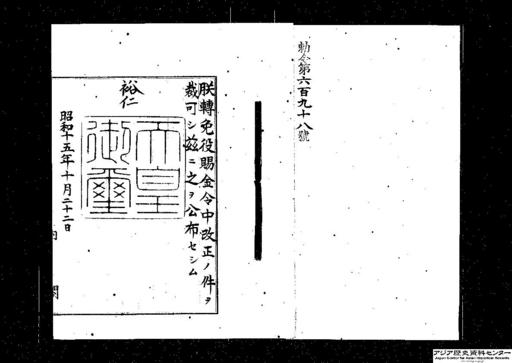 勅令第六百九十八號
朕轉免役賜金令中改正ノ件ヲ
裁可シ茲ニ之ヲ公布セシム
裕仁
天皇
御璽
昭和十五年十月二十二日
内閣
アジア歴史資料センター
Japan Center for Asian Historical Records